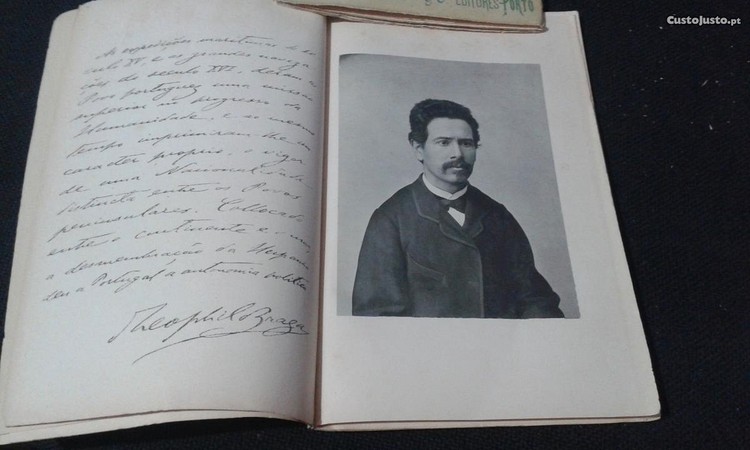 & C.ª EDITORES-PORTO
CustoJusto.pt
As expedições maritimas do se-
culo XV, e as grandes navega-
ções do seculo XVI, deram ao
Povo portuguez uma missão
superior no progresso da
Humanidade, e ao mesmo
tempo imprimiram-lhe um
caracter proprio, o vigor
de uma Nacionalidade
distincta entre os Povos
peninsulares. Collocado
entre o continente e o mar,
a desmembração da Hespanha
deu a Portugal a autonomia politica
Theophilo Braga